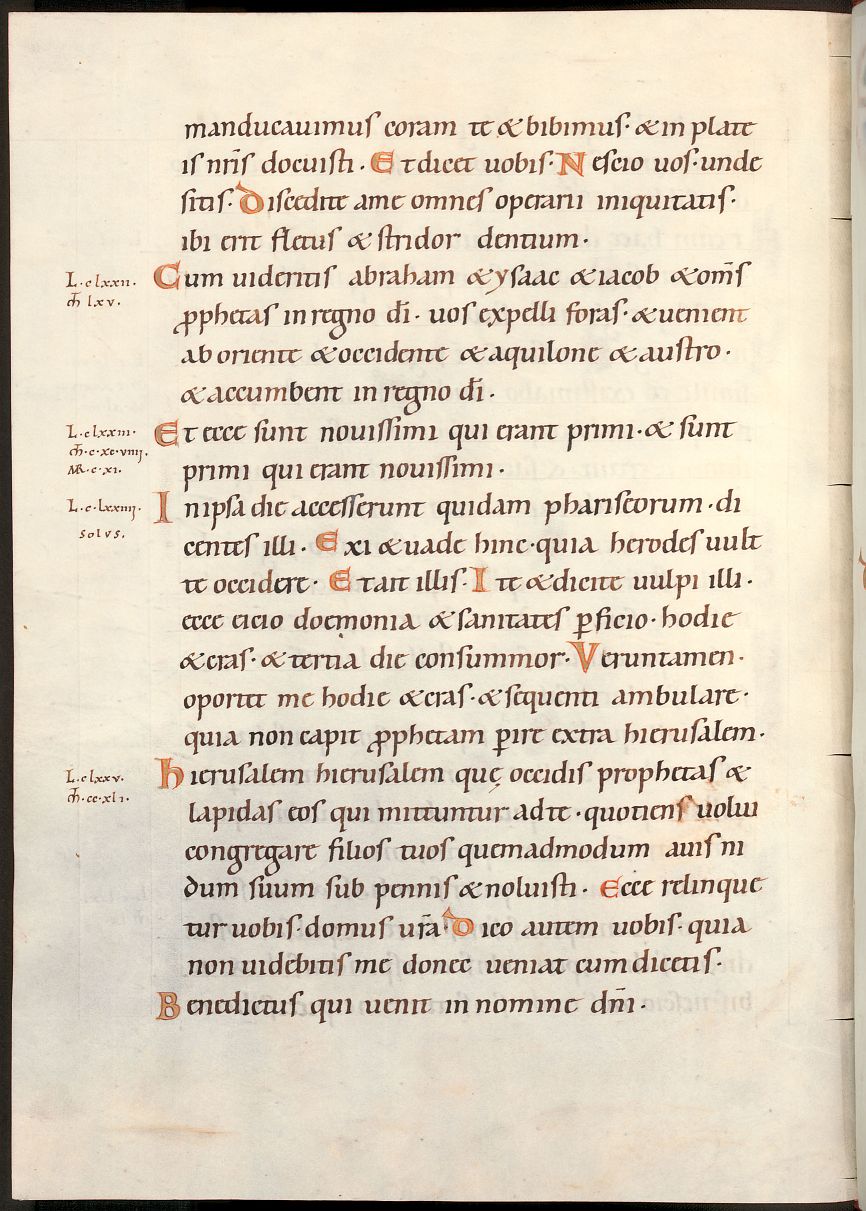 manducauimus coram te & bibimus· & in plate
is nr̄is docuisti · Et dicet uobis· Nescio uos· unde
sitis· Discedite ame omnes operarii iniquitatis·
ibi erit fletus & stridor dentium·
L·clxxii· Cum uideritis abraham & ysaac & iacob & om̄s
m̄ lxv· prophetas in regno dī· uos expelli foras· & uenient
ab oriente & occidente & aquilone & austro·
& accumbent in regno dī·
L·clxxiii· Et ecce sunt nouissimi qui erant primi· & sunt
m̄·c·xc·viiij·
MR·c·xi· primi qui erant nouissimi·
L·c·lxxiiij· In ipsa die accesserunt quidam phariseorum· di
solus· centes illi· Exi & uade hinc· quia herodes uult
te occidere· Et ait illis· Ite & dicite uulpi illi·
ecce eicio doemonia & sanitates ꝑficio· hodie
& cras· & tertia die consummor· Veruntamen·
oportet me hodie & cras· & sequenti ambulare·
quia non capit prophetam ꝑire extra hierusalem·
L·clxxv· Hierusalem hierusalem quę occidis prophetas &
m̄·cc·xli· lapidas eos qui mittuntur ad te· quotiens uolui
congregare filios tuos quemadmodum auis ni
dum suum sub pennis & noluisti· Ecce relinque
tur uobis· domus ur̄a· Dico autem uobis· quia
non uidebitis me donec ueniat cum dicetis·
Benedictus qui uenit in nomine dn̄i·